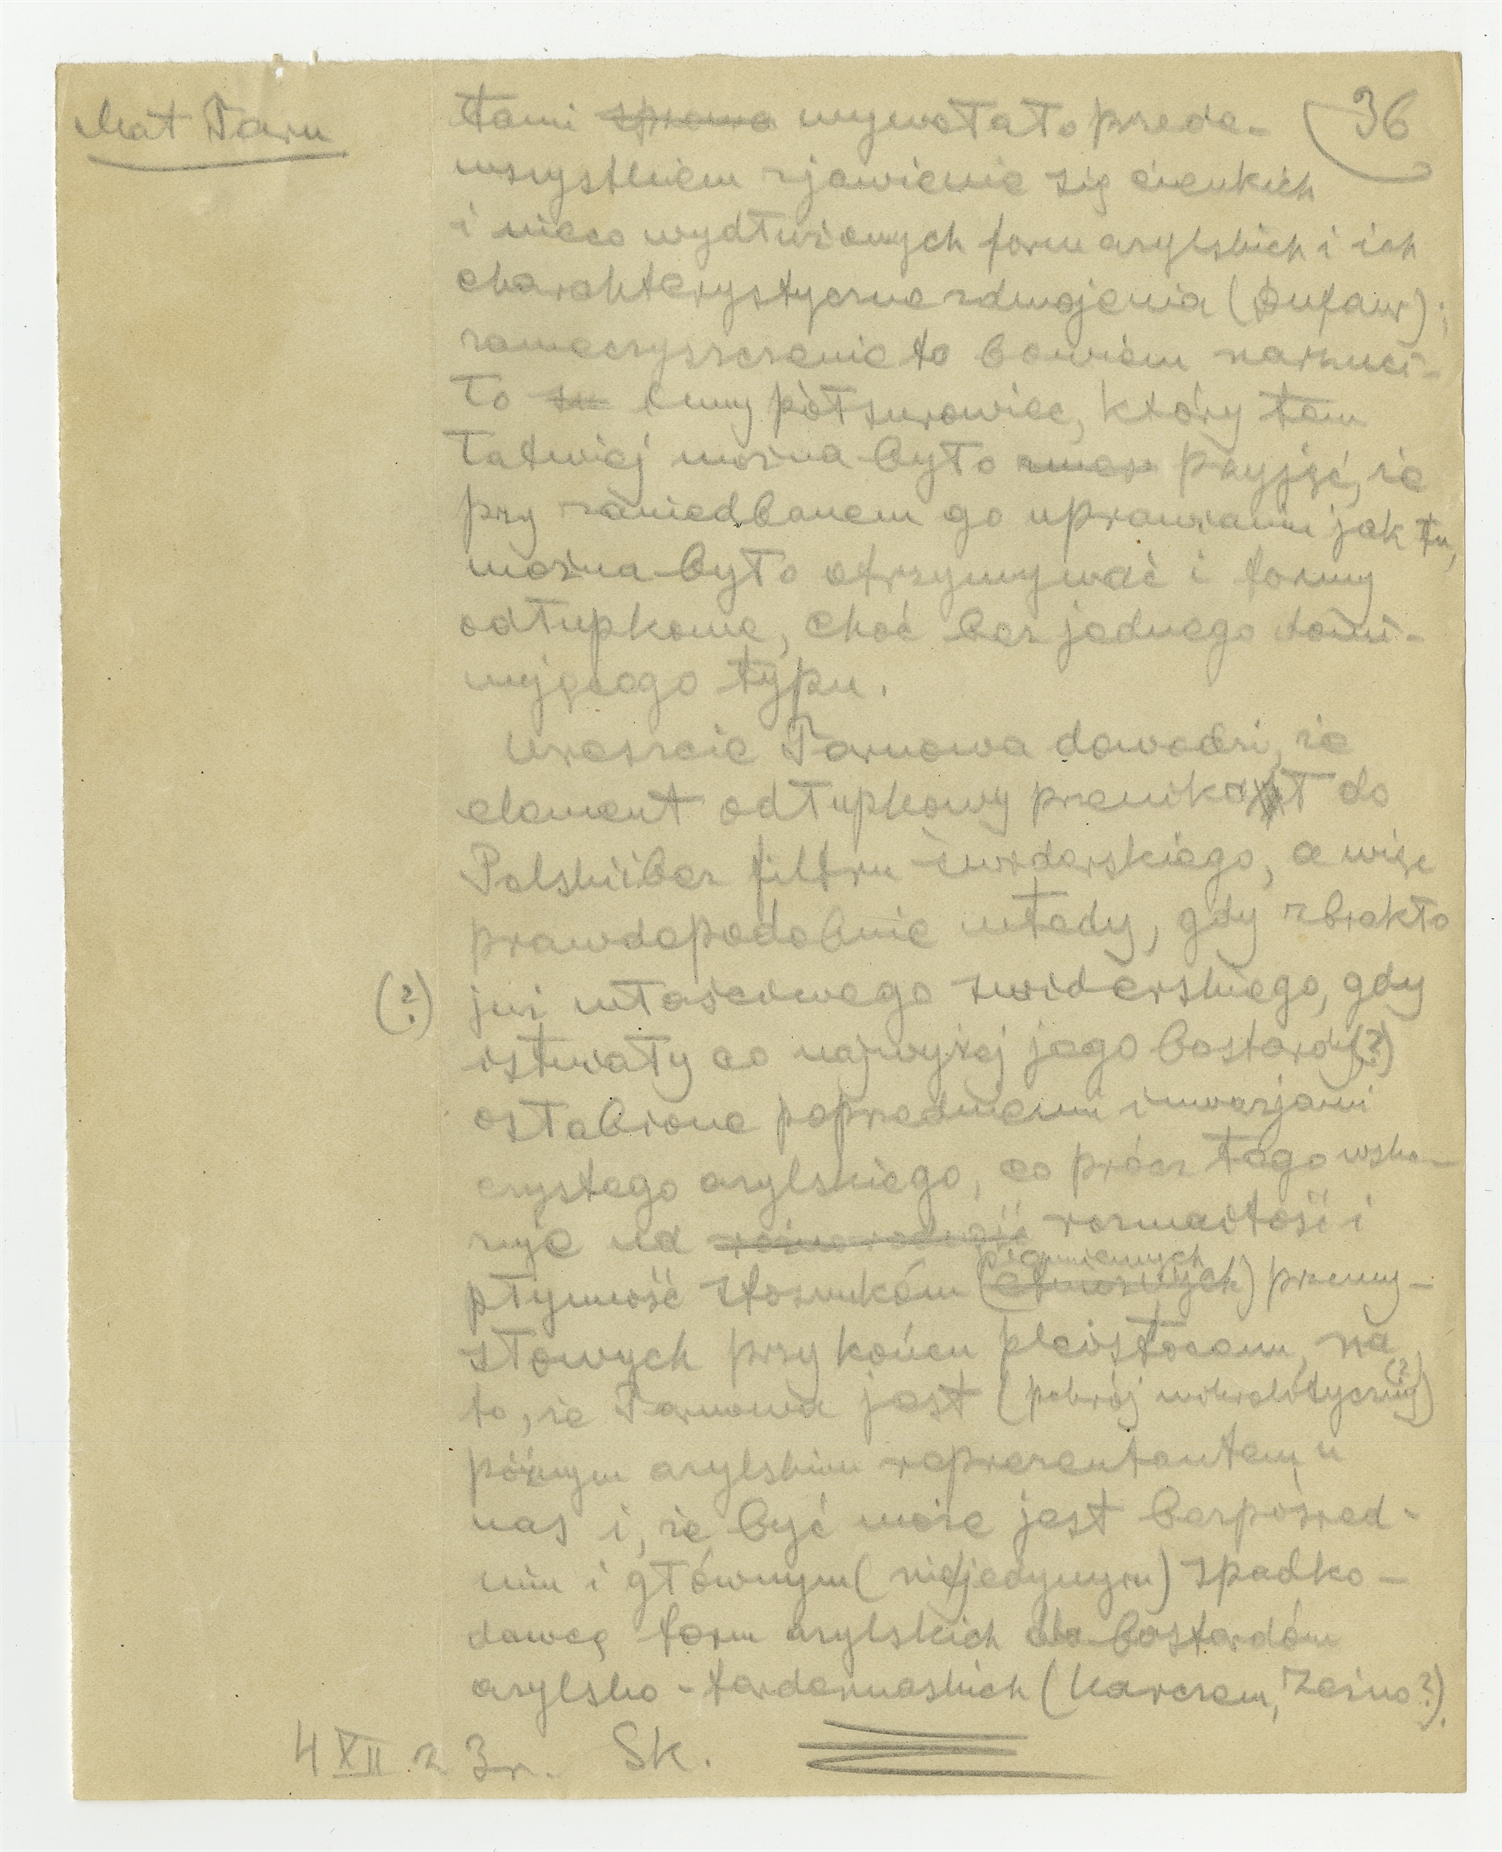 Mat Tarn
36
tami sprawa wywołało prede-
wszystkiem zjawienie się cienkich
i nieco wydłużonych form azylskich i ich
charakterystyczne zdwojenia (Dufaur);
zanieczyszczenie to bowiem narzuci-
ło inny półsurowiec, który tem
łatwiej można było przyjąć, że
przy zaniedbanem go uprawianiu jak tu,
można było otrzymywać i formy
odłupkowe, choć bez jednego domi-
nującego typu.
Wreszcie Tarnowa dowodzi, że
element odłupkowy przenikał do
Polski bez filtru świderskiego, a więc
prawdopodobnie wtedy, gdy zbrakło
(?) już właściwego świderskiego, gdy
istniały co najwyżej jego bastardy(?)
osłabione poprzedniemi inwazjami
czystego azylskiego, co prócz tego wska-
zuje na różnorodność rozmaitość i
plemiennych
płynność stosunków (etnicznych) przemy-
słowych przy końcu pleistocenu, na
to, że Tarnowa jest (pokrój mikrolityczny (?))
późnym azylskim reprezentantem u
nas i, że być może jest bezpośred-
nim i głównym (niejedynym) spadko-
dawcą form azylskich dla bastardów
azylsko-tardenuaskich (Karczew, Zezno?).
4 XII 23r. Sk.